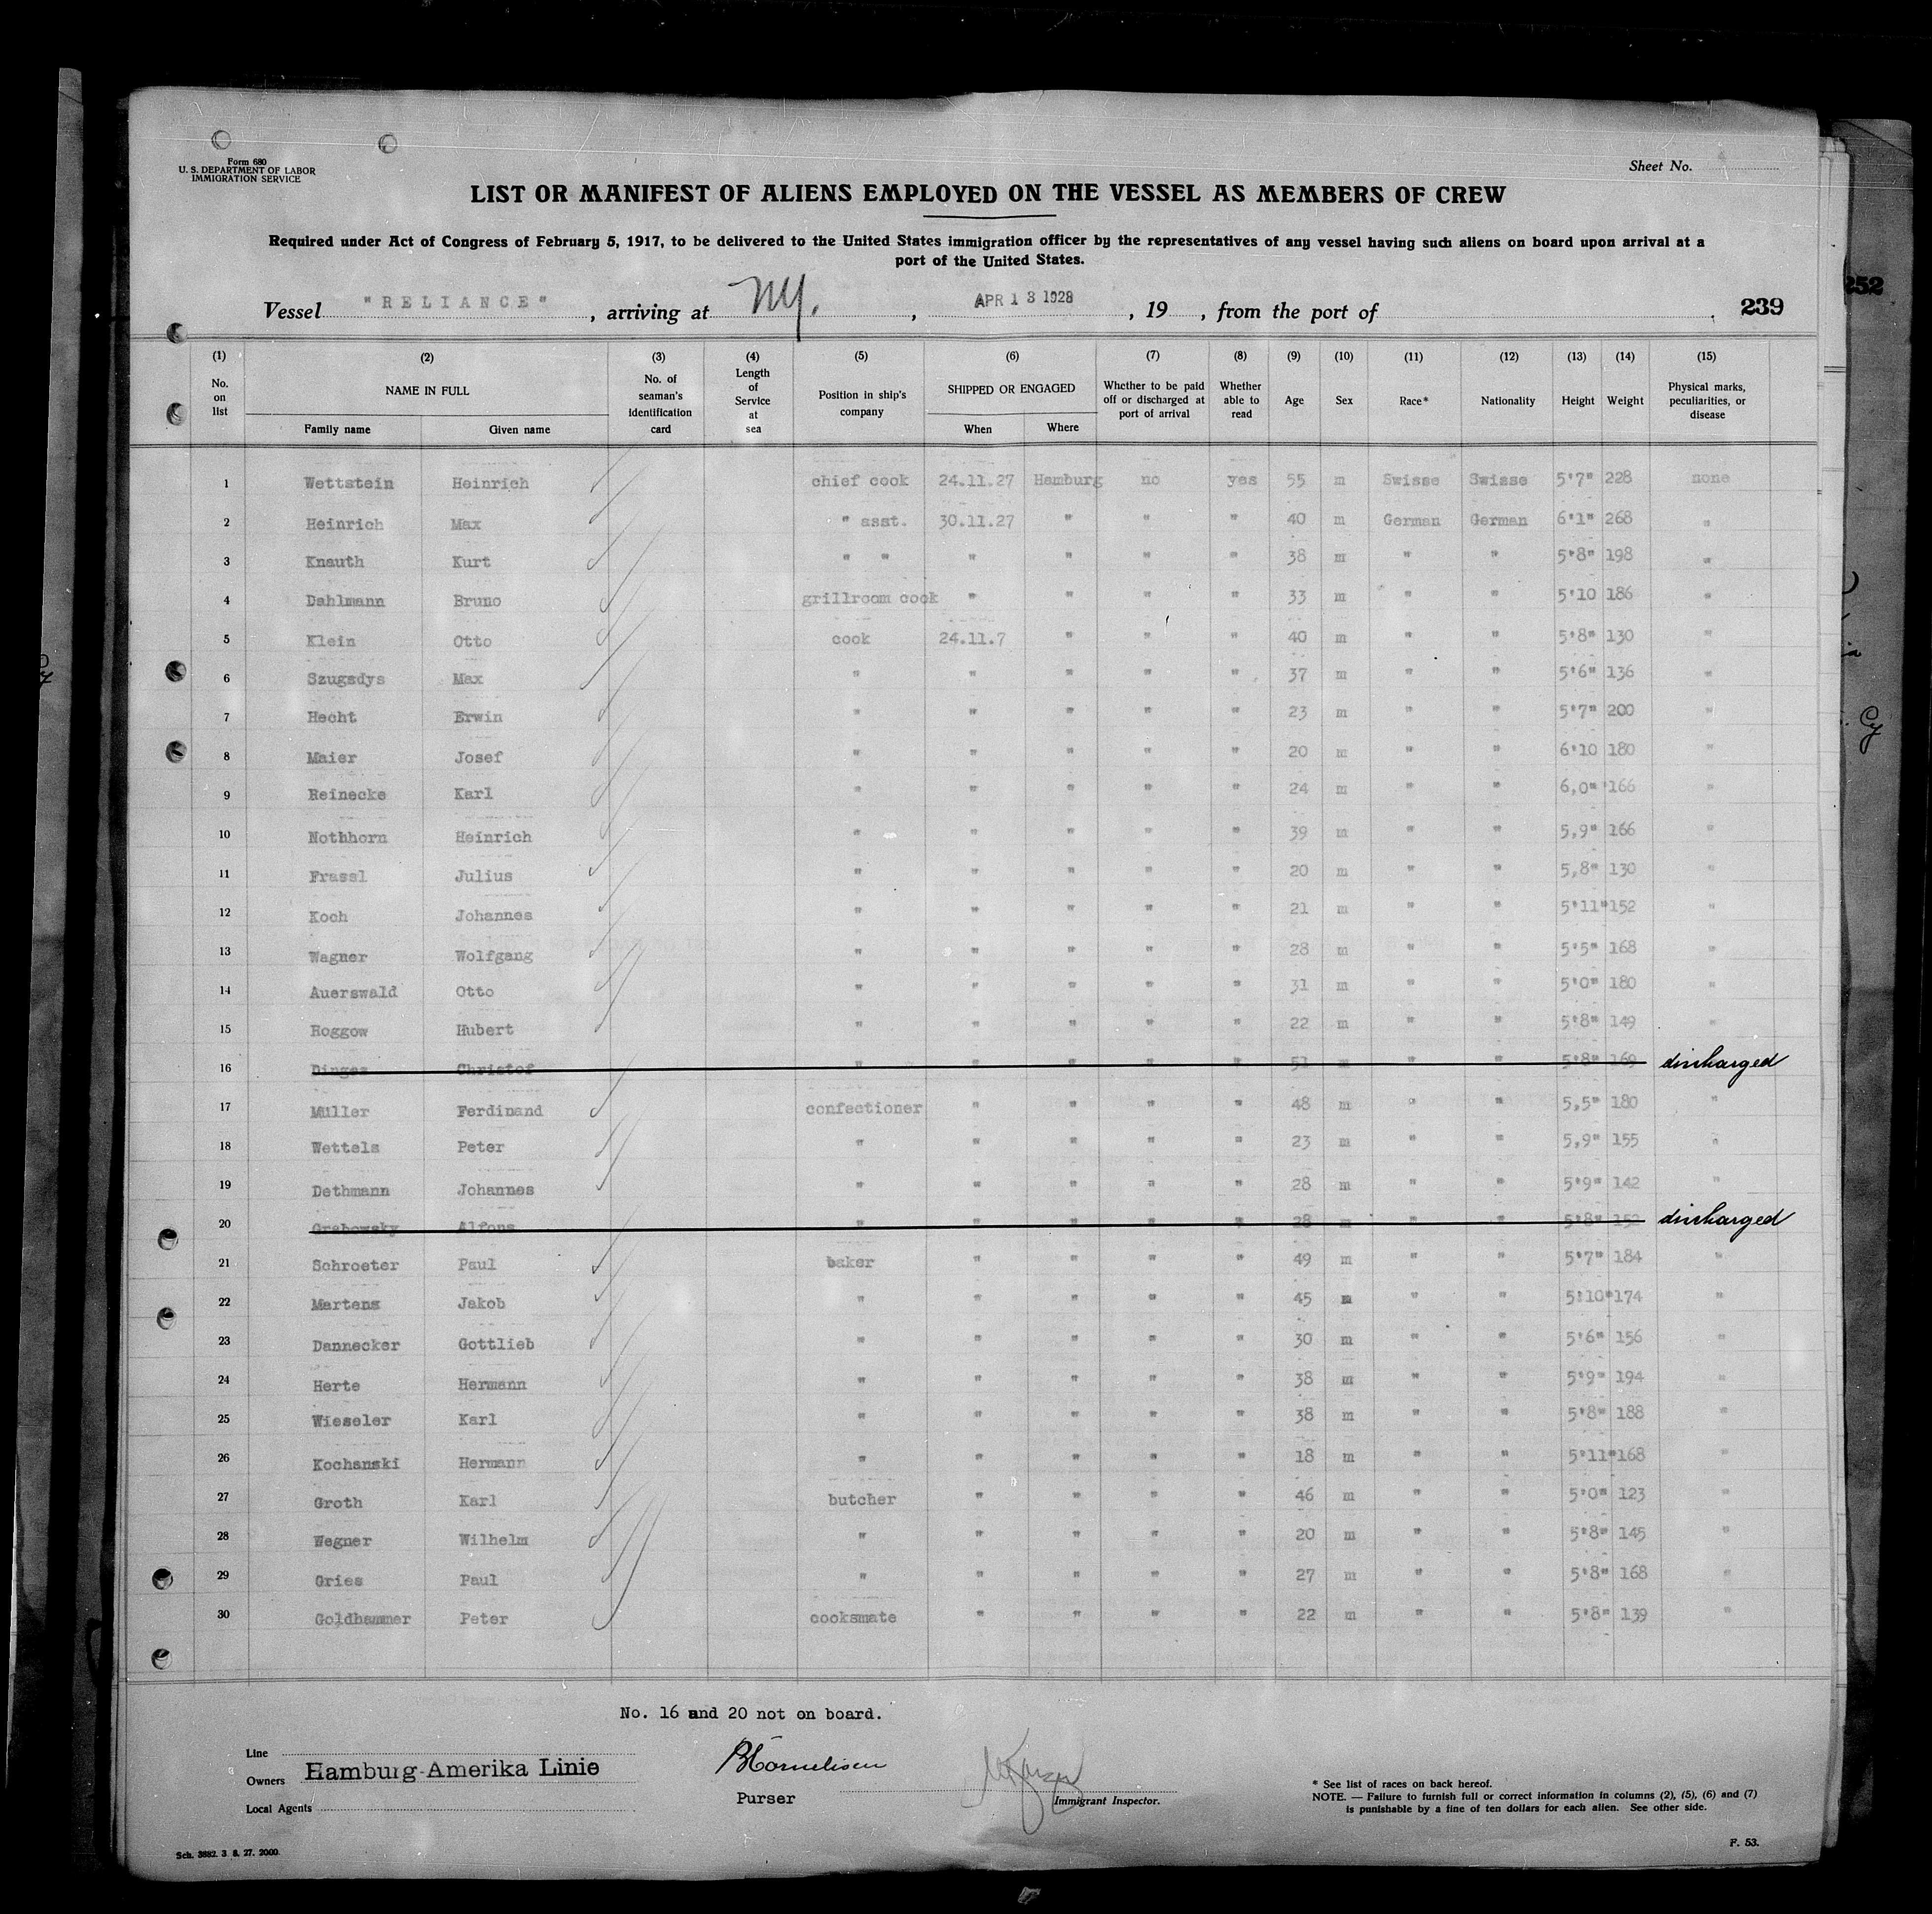 Form 680
U. S. DEPARTMENT OF LABOR
IMMIGRATION SERVICE
Sheet No.
LIST OR MANIFEST OF ALIENS EMPLOYED ON THE VESSEL AS MEMBERS OF CREW
Required under Act of Congress of February 5, 1917, to be delivered to the United States immigration officer by the representatives of any vessel having such aliens on board upon arrival at a
port of the United States.
Vessel "RELIANCE", arriving at NY., APR 13 1928, 19 , from the port of . 239
252
(1) (2) (3) (4) (5) (6) (7) (8) (9) (10) (11) (12) (13) (14) (15)
No. on list NAME IN FULL Family name Given name No. of seaman's identification card Length of Service at sea Position in ship's company SHIPPED OR ENGAGED When Where Whether to be paid off or discharged at port of arrival Whether able to read Age Sex Race* Nationality Height Weight Physical marks, peculiarities, or disease
1 Wettstein Heinrich chief cook 24.11.27 Hamburg no yes 55 m Swisse Swisse 5'7" 228 none
2 Heinrich Max " asst. 30.11.27 " " " 40 m German German 6'1" 268 "
3 Knauth Kurt " " " " " " 38 m " " 5'8" 198 "
4 Dahlmann Bruno grillroom cook " " " " 33 m " " 5'10 186 "
5 Klein Otto cook 24.11.7 " " " 40 m " " 5'8" 130 "
6 Szugsdys Max " " " " " 37 m " " 5'6" 136 "
7 Hecht Erwin " " " " " 23 m " " 5'7" 200 "
8 Maier Josef " " " " " 20 m " " 6'10 180 "
9 Reinecke Karl " " " " " 24 m " " 6,0" 166 "
10 Nothhorn Heinrich " " " " " 39 m " " 5,9" 166 "
11 Frassl Julius " " " " " 20 m " " 5,8" 130 "
12 Koch Johannes " " " " " 21 m " " 5'11" 152 "
13 Wagner Wolfgang " " " " " 28 m " " 5'5" 168 "
14 Auerswald Otto " " " " " 31 m " " 5'0" 180 "
15 Roggow Hubert " " " " " 22 m " " 5'8" 149 "
16 Dinges Christof " " " " " 51 m " " 5'8" 169 discharged
17 Müller Ferdinand confectioner " " " " 48 m " " 5,5" 180 "
18 Wettels Peter " " " " " 23 m " " 5,9" 155 "
19 Dethmann Johannes " " " " " 28 m " " 5'9" 142 "
20 Grabowsky Alfons " " " " " 28 m " " 5'8" 152 discharged
21 Schroeter Paul baker " " " " 49 m " " 5'7" 184 "
22 Martens Jakob " " " " " 45 m " " 5'10" 174 "
23 Dannecker Gottlieb " " " " " 30 m " " 5'6" 156 "
24 Herte Hermann " " " " " 38 m " " 5'9" 194 "
25 Wieseler Karl " " " " " 38 m " " 5'8" 188 "
26 Kochanski Hermann " " " " " 18 m " " 5'11" 168 "
27 Groth Karl butcher " " " " 46 m " " 5'0" 123 "
28 Wegner Wilhelm " " " " " 20 m " " 5'8" 145 "
29 Gries Paul " " " " " 27 m " " 5'8" 168 "
30 Goldhammer Peter cooksmate " " " " 22 m " " 5'8" 139 "
No. 16 and 20 not on board.
Line
Owners Hamburg-Amerika Linie
Local Agents
BCornelisen
Purser
Immigrant Inspector.
* See list of races on back hereof.
NOTE. — Failure to furnish full or correct information in columns (2), (5), (6) and (7)
is punishable by a fine of ten dollars for each alien. See other side.
Sch. 3882. 3. 8. 27. 2000.
F. 53.